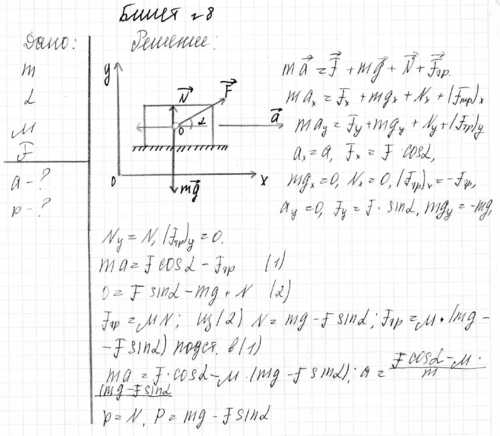 Билет №8
Дано:
m
α
μ
F⃗
a - ?
p - ?
Решение:
y
N⃗
F⃗
α
a⃗
0
mg⃗
0
x
ma⃗ = F⃗ + mg⃗ + N⃗ + F⃗тр.
maₓ = Fₓ + mgₓ + Nₓ + (Fтр)ₓ
may = Fy + mgy + Ny + (Fтр)y
aₓ = a, Fₓ = F cosα,
mgₓ = 0, Nₓ = 0, (Fтр)ₓ = -Fтр,
ay = 0, Fy = F · sinα, mgy = -mg,
Ny = N, (Fтр)y = 0.
ma = F cosα - Fтр (1)
0 = F sinα - mg + N (2)
Fтр = μN; из (2) N = mg - F sinα; Fтр = μ · (mg -
- F sinα) подст. в (1)
ma = F · cosα - μ · (mg - F sinα); a = F cosα - μ · / m
(mg - F sinα)
p = N, P = mg - F sinα